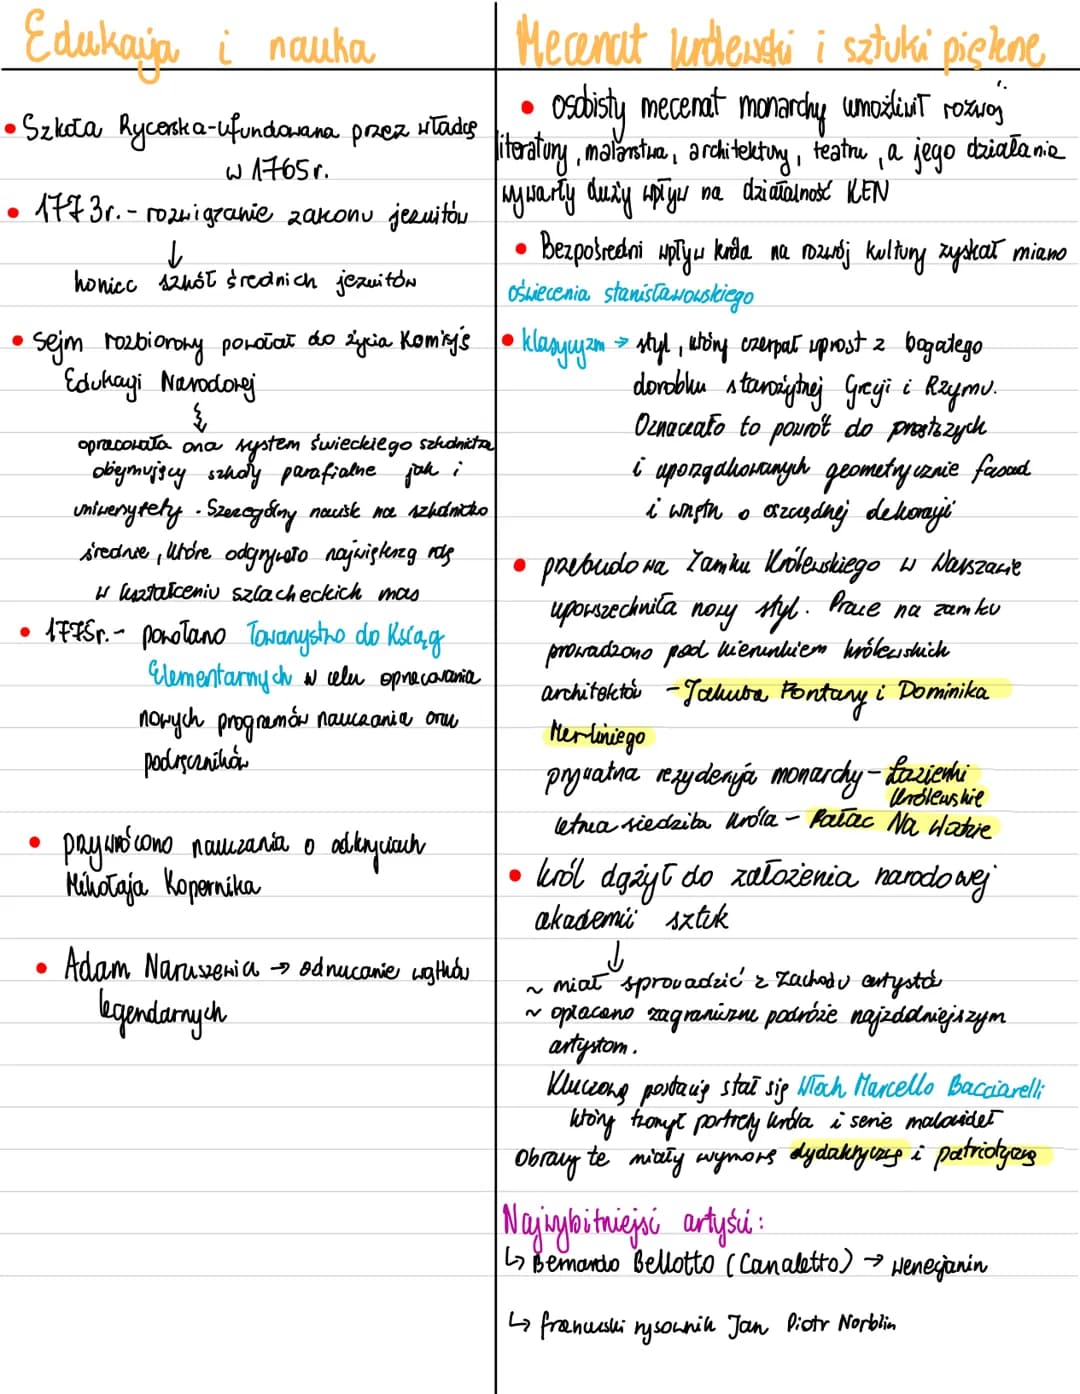 Edukacja i nauka
• Szkoła Rycerska-ufundowana przez władcę
w 1765r.
• 1773r.- rozwiązanie zakonu jezuitów
↓
koniec szkół średnich jezuitów
• Sejm rozbiorowy powołał do życia Komisję
Edukacji Narodowej
opracowała ona system świeckiego szkolnictwa
obejmujący szkoły parafialne jak i
uniwersytety. Szczególny nacisk na szkolnictwo
średnie, które odgrywało największą rolę
w kształceniu szlacheckich mas
• 1775r.- powołano Towarzystwo do Ksiąg
Elementarnych w celu opracowania
nowych programów nauczania oraz
podręczników
• przywrócono nauczania o odkryciach
Mikołaja Kopernika
• Adam Naruszewia → odrzucanie wątków
legendarnych
Mecenat królewski i sztuki piękne
• osobisty mecenat monarchy umożliwił rozwój
literatury, malarstwa, architektury, teatru, a jego działania
wywarły duży wpływ na działalność KEN
• Bezpośredni wpływ króla na rozwój kultury zyskał miano
oświecenia stanisławowskiego
• klasycyzm → styl, który czerpał wprost z bogatego
dorobku starożytnej Grecji i Rzymu.
Oznaczało to powrót do prostszych
i uporządkowanych geometrycznie fasad
i wnętrz o oszczędnej dekoracji
• przebudowa Zamku Królewskiego w Warszawie
upowszechniła nowy styl. Prace na zamku
prowadzono pod kierunkiem królewskich
architektów - Jakuba Fontany i Dominika
Merliniego
prywatna rezydencja monarchy - Łazienki
Królewskie
letnia siedziba króla - Pałac Na Wodzie
• król dążył do założenia narodowej
akademii sztuk
↓
~ miał sprowadzić z Zachodu artystów
~ opłacano zagraniczne podróże najzdolniejszym
artystom.
Kluczową postacią stał się Włoch Marcello Bacciarelli
który tworzył portrety króla i serie malowideł
Obrazy te miały wymowę dydaktyczną i patriotyczną
Najwybitniejsi artyści:
↳ Bernardo Bellotto (Canaletto) → wenecjanin
↳ francuski rysownik Jan Piotr Norblin